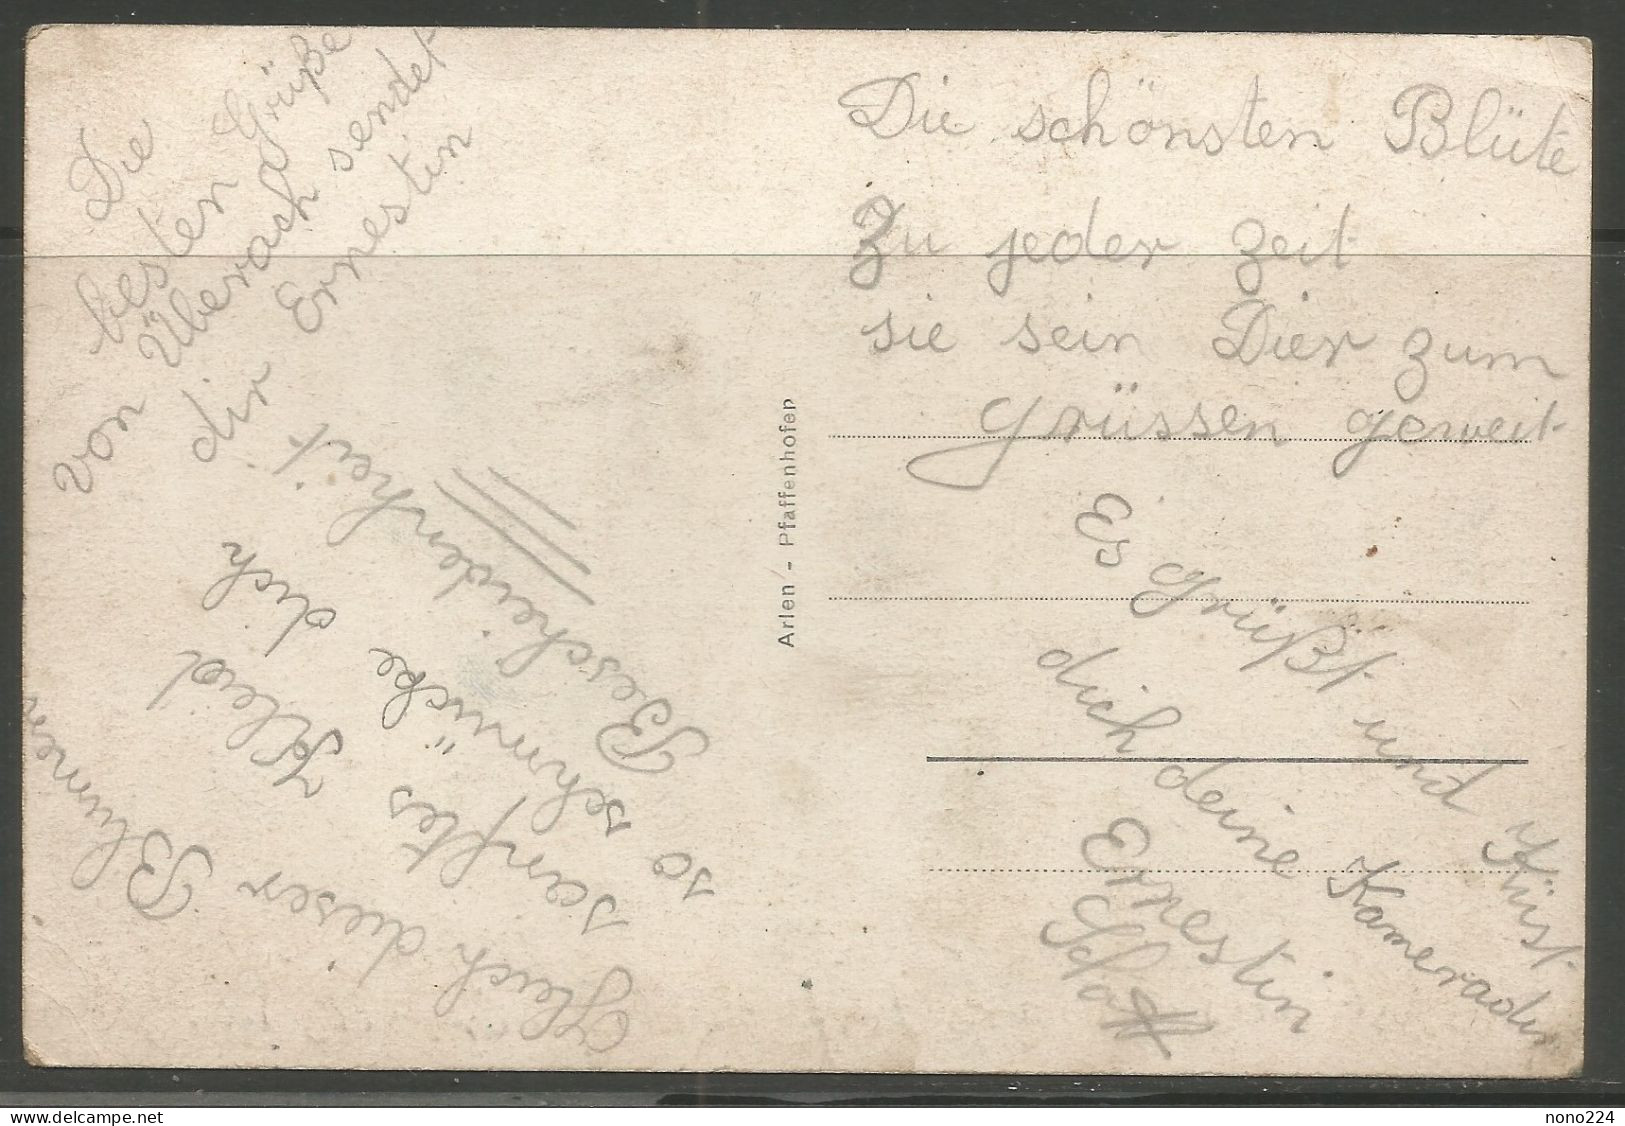 Die
besten Grüße
von Überach sendet
dir Ernestin
Gleich dieser Blumen
sanftes Kleid
so schmücke dich
Bescheidenheit
Arlen - Pfaffenhofen
Die schönsten Blüte
Zu jeder Zeit
sie sein Dier zum
Grüssen geweit
Es grüßt und Küst
dich deine Kameradin
Ernestin
delcampe.net
nono224